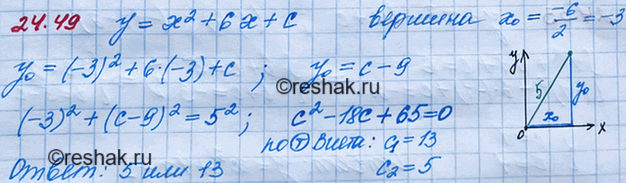 24.49 y = x² + 6x + c вершина x₀ = -6/2 = -3
y₀ = (-3)² + 6·(-3) + c ; y₀ = c - 9
©reshak.ru
(-3)² + (c-9)² = 5² ; c² - 18c + 65 = 0
по Т Виета: c₁ = 13
c₂ = 5
Ответ: 5 или 13
©reshak.ru
y
5
y₀
0
x₀
x